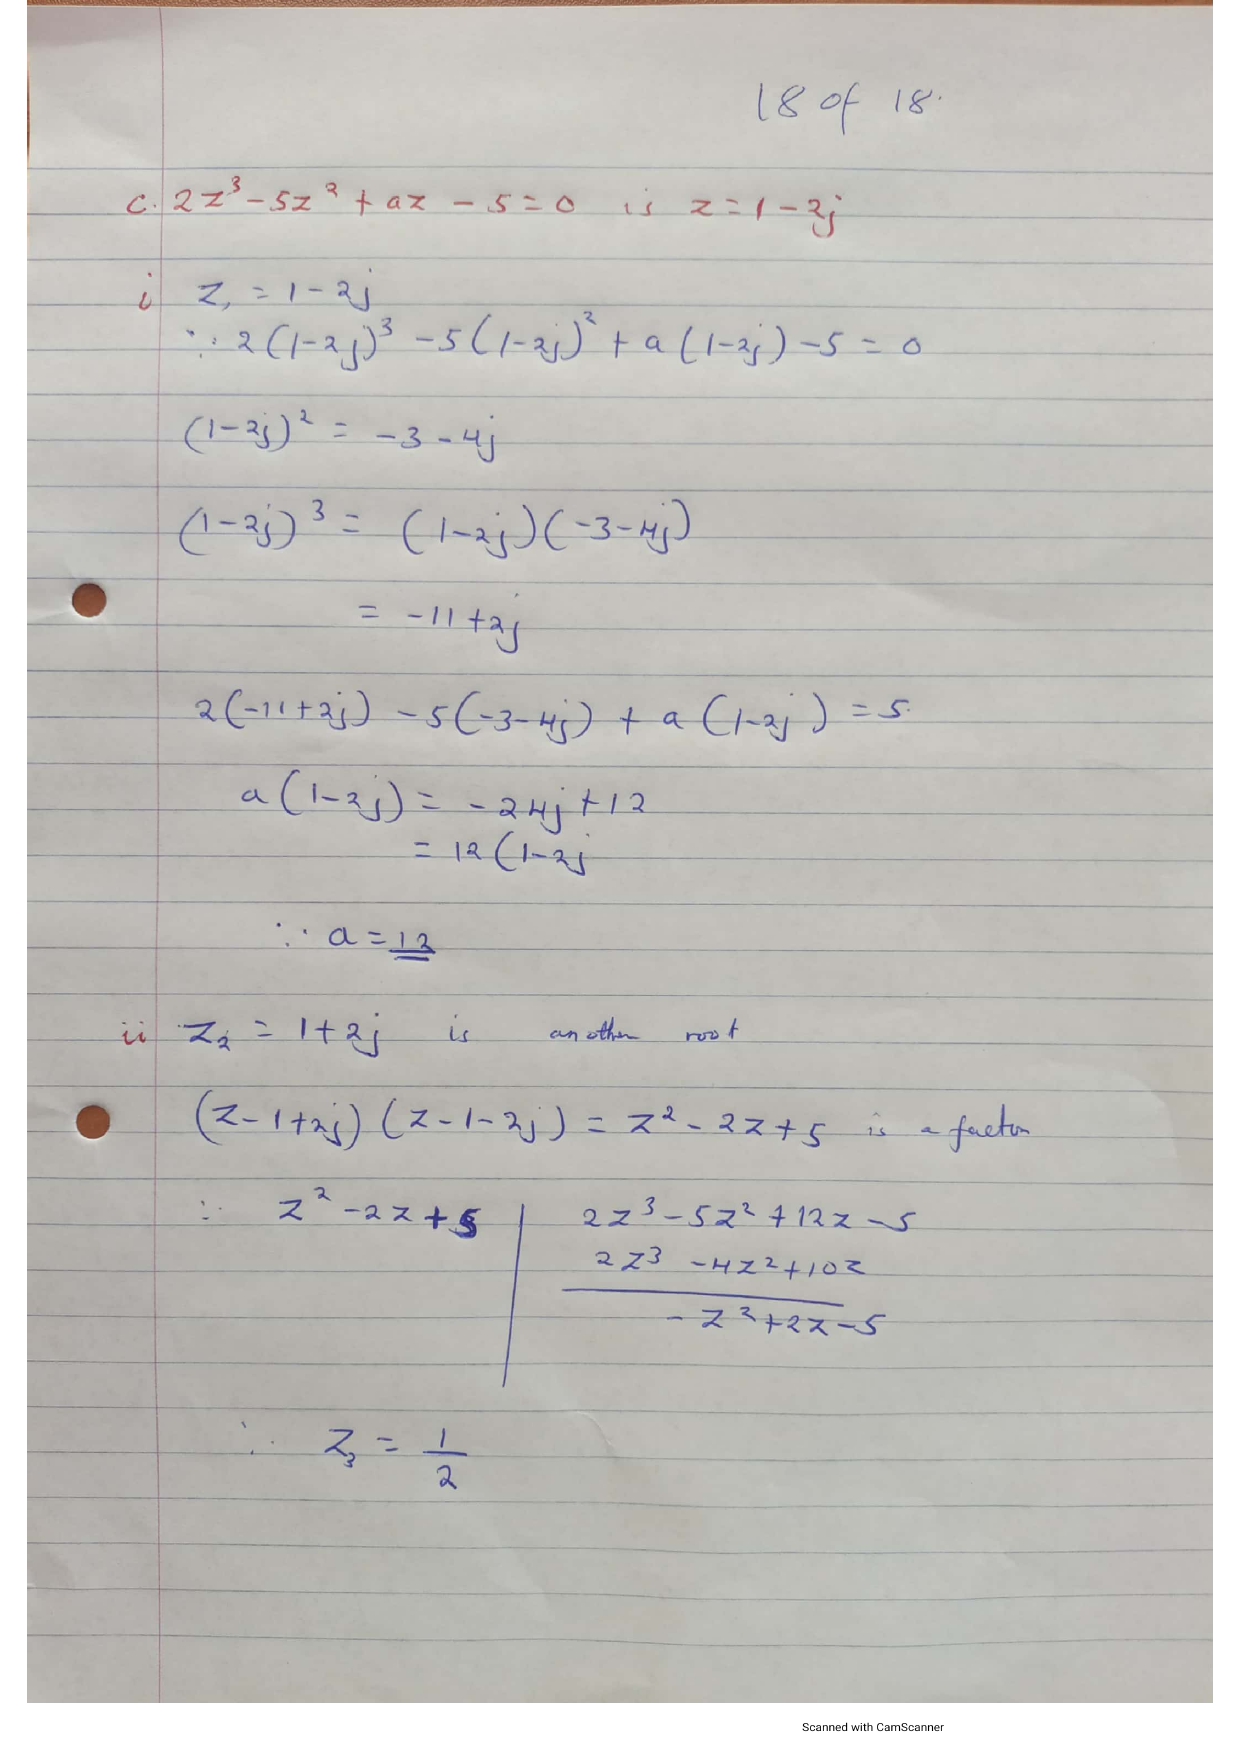 18 of 18.
c. 2z³ - 5z² + az - 5 = 0 is z = 1 - 2j
i z₁ = 1 - 2j
∵ 2(1-2j)³ - 5(1-2j)² + a(1-2j) - 5 = 0
(1-2j)² = -3 - 4j
(1-2j)³ = (1-2j)(-3-4j)
= -11 + 2j
2(-11+2j) - 5(-3-4j) + a(1-2j) = 5
a(1-2j) = -24j + 12
= 12(1-2j
∵ a = 12
ii z₂ = 1 + 2j is another root
(z-1+2j)(z-1-2j) = z² - 2z + 5 is a factor
∴ z² - 2z + 5 | 2z³ - 5z² + 12z - 5
2z³ - 4z² + 10z
- z² + 2z - 5
∴ z₃ = 1/2
Scanned with CamScanner